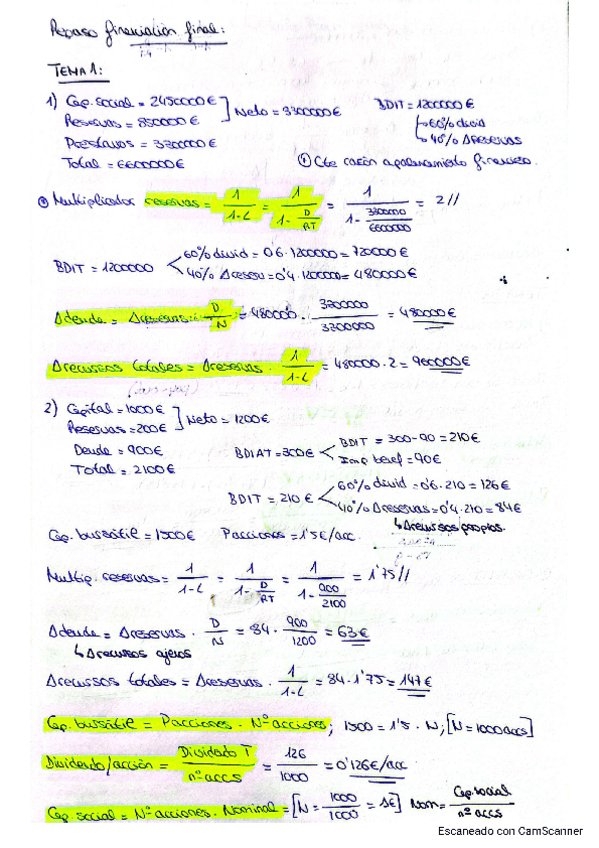 Repaso financiación final:
TEMA 1:
1) Cap. social = 2450000€
Reservas = 850000€ ] Neto = 3300000€ BDIT = 1200000€
↳ 60% divid
Préstamos = 3300000€ ↳ 40% Δreservas
Total = 6600000€ Cte razón apalancamiento financiero.
Multiplicador reservas = 1/(1-L) = 1/(1 - D/RT) = 1/(1 - 3300000/6600000) = 2//
60% divid = 0'6 · 1200000 = 720000€
BDIT = 1200000
40% Δreserv = 0'4 · 1200000 = 480000€
Δdeuda = Δreservas · D/N = 480000 · 3300000/3300000 = 480000€
Δrecursos totales = Δreservas · 1/(1-L) = 480000 · 2 = 960000€
2) Capital = 1000€
Reservas = 200€ ] Neto = 1200€
BDIT = 300-90 = 210€
Deuda = 900€ BDIAT = 300€
Imp benef = 90€
Total = 2100€
60% divid = 0'6 · 210 = 126€
BDIT = 210€
40% Δreservas = 0'4 · 210 = 84€
↳ Δrecursos propios
Cap. bursátil = 1500€ Pacciones = 1'5€/acc.
Multip. reservas = 1/(1-L) = 1/(1 - D/RT) = 1/(1 - 900/2100) = 1'75//
Δdeuda = Δreservas · D/N = 84 · 900/1200 = 63€
↳ Δrecursos ajenos
Δrecursos totales = Δreservas · 1/(1-L) = 84 · 1'75 = 147€
Cap. bursátil = Pacciones · Nº acciones; 1500 = 1'5 · N; [N = 1000 accs]
Dividendo/acción = Dividendo T/nº accs = 126/1000 = 0'126€/acc
Cap. social = Nº acciones · Nominal = [N = 1000/1000 = 1€] Nom = Cap. social/nº accs
Escaneado con CamScanner